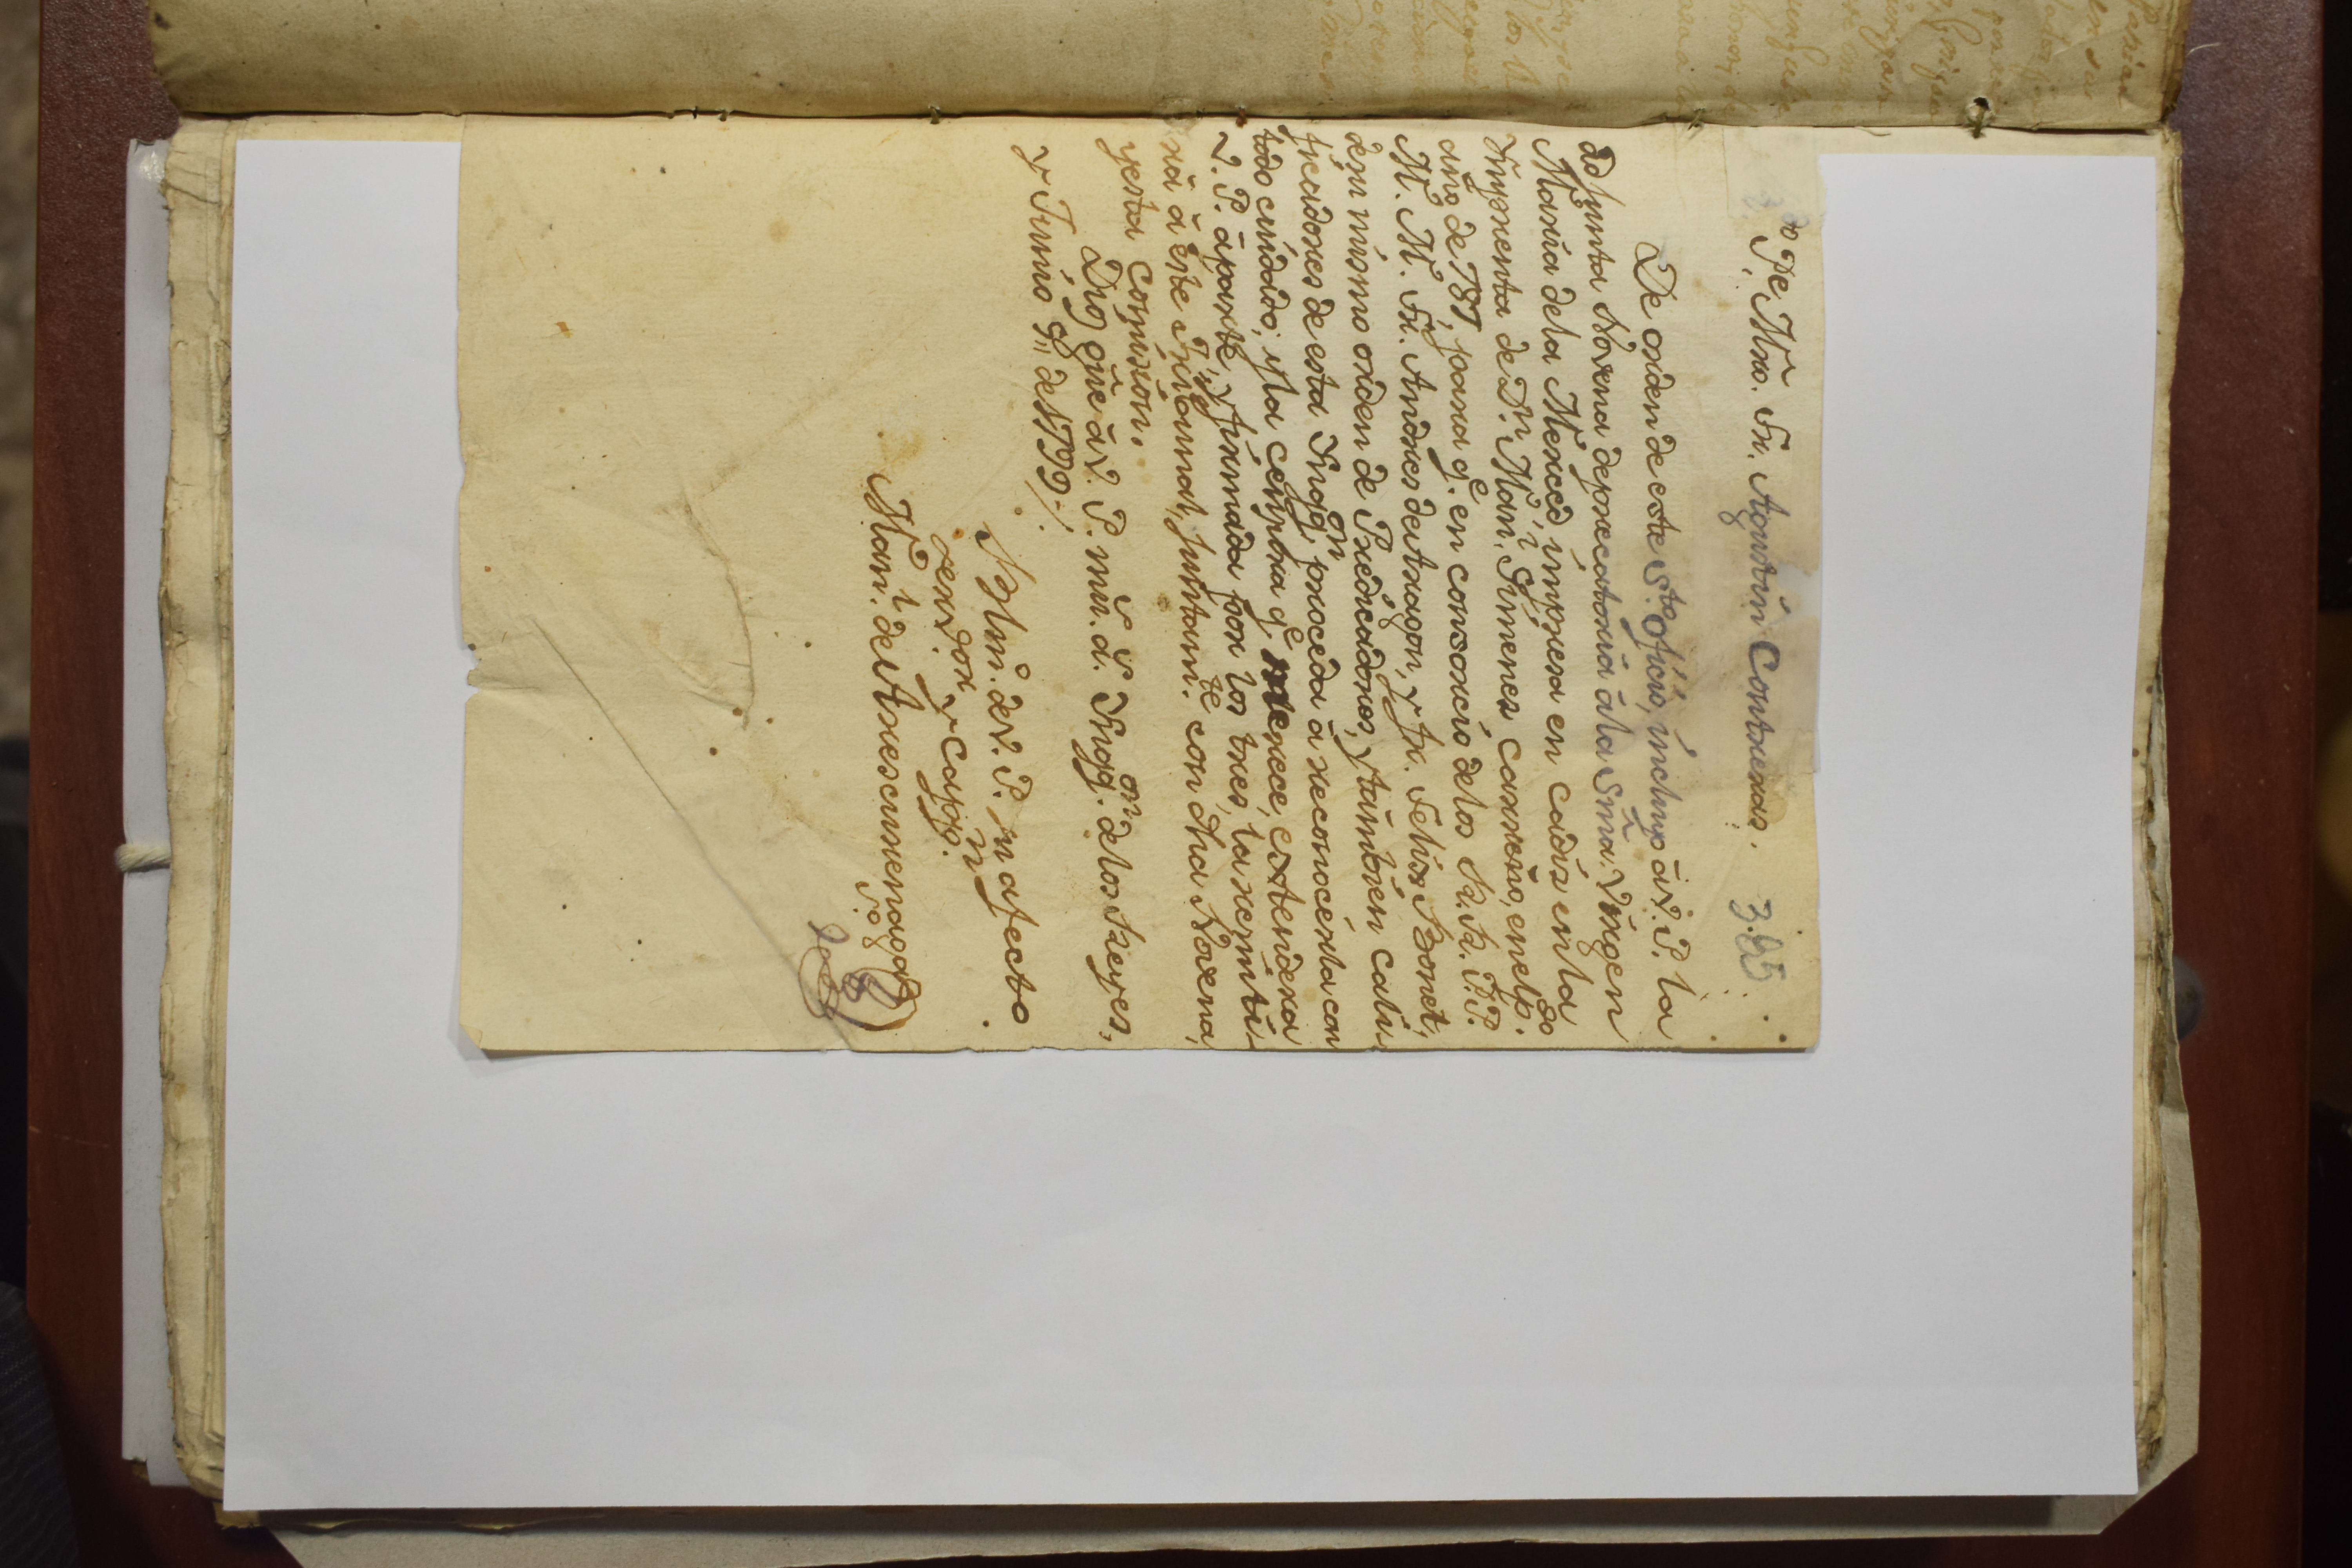 Pe. Mro. Fr. Agustin Contreras. 365
De orden de este Sto. Oficio, incluyo à V. P. la
adjunta Novena deprecatoria à la Sma. Virgen
Maria de la Merced impresa en Cadiz en la
Ymprenta de Dn. Manl. Ximenez Carreño, en el pdo.
año de 787, para qe. en consorcio de los RR. PP.
M. M. Fr. Andres de Aragon, y Fr. Felix Bonet,
del mismo orden de Predicadores, y tambien cali-
ficadores de esta Ynqqon. proceda à reconocerla con
todo cuidado; y la censura qe. merece, extendera
V. P. àparte, y firmada por los tres, la remiti-
rà à este Tribunal, juntamte. con dha Novena,
y esta comision.
Dios gue. à V. P. ms. as. Ynqqon. de los Reyes,
y Junio 9,, de 1799,,
B L M. de V. P. su afecto
servor. y Cappn.
Manl. de Arescurrenaga
S.º